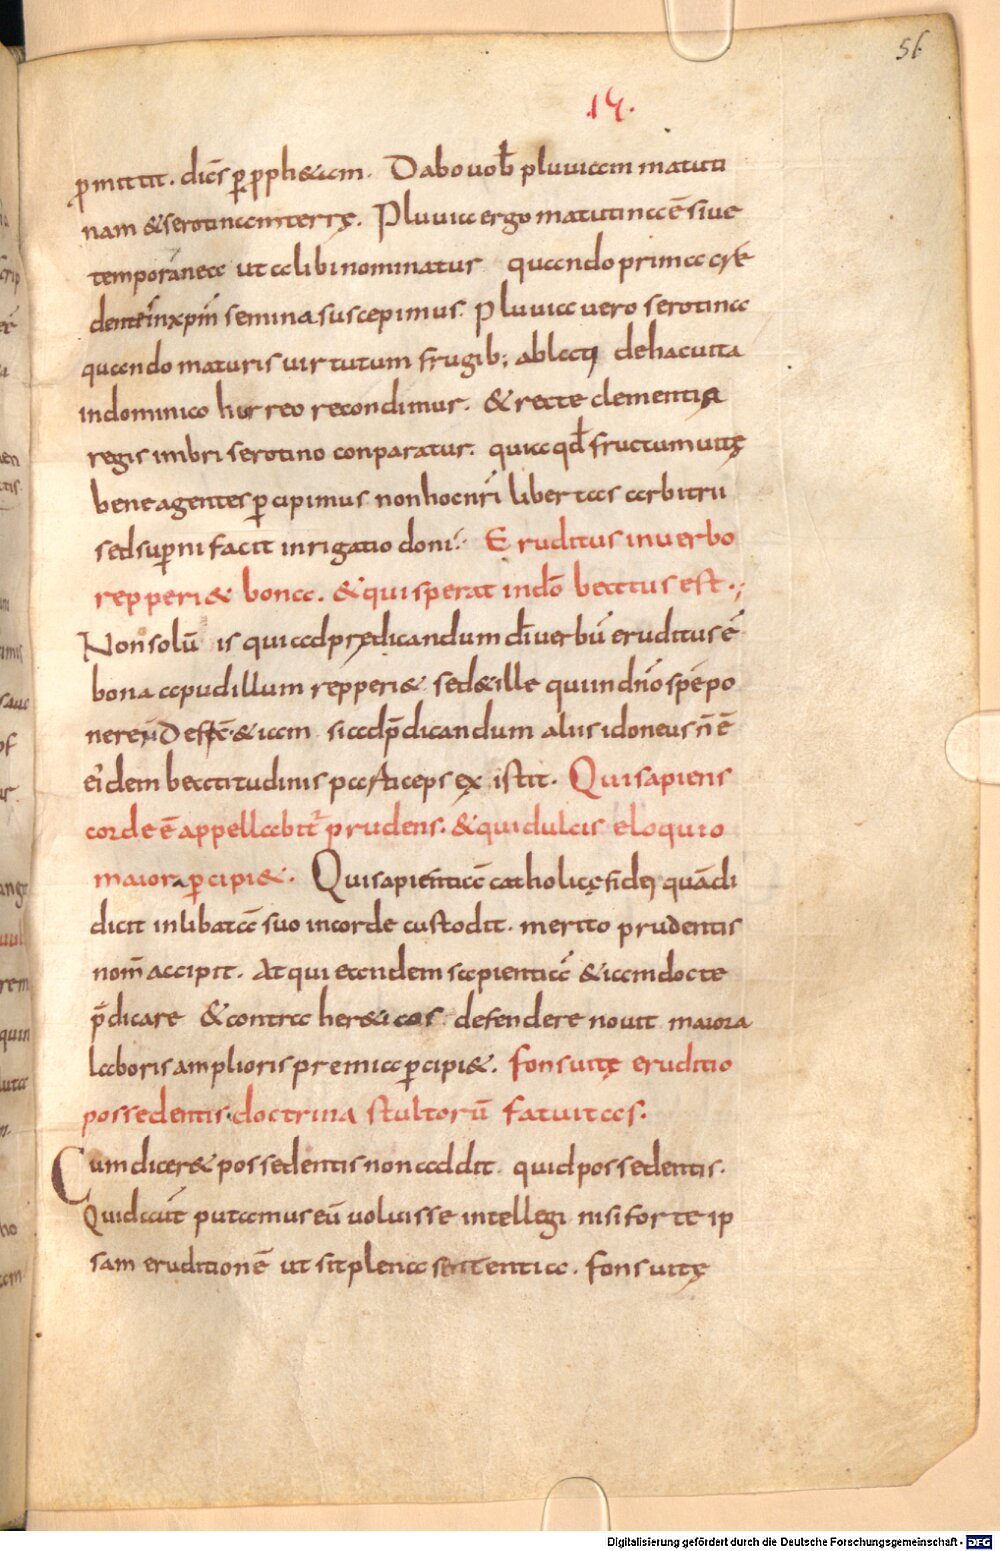 56
.14.
ꝓmittit. dicēs ꝑ ꝓph&am. Dabo vob̅ pluuiam matuti
nam & serotinam terrę. Pluuia ergo matutina ē siue
temporanea ut alibi nominatur quando prima cre
dentes in xp̅m semina suscepimus. Pluuia uero serotina
quando maturis uirtutum frugib; ablatis de hac uita
in dominico horreo recondimur. & recte clementia
regis imbri serotino conparatur. quia qd̅ fructum uitę
bene agentes ꝑcipimus non hoc nr̅i libertas arbitrii
sed suꝑni facit inrigatio doni. Eruditus in uerbo
repperi& bona. & qui sperat in dn̅o beatus est.;
Non solū is qui ad prędicandum di̅ uerbū eruditus ē
bona apud illum repperi& sed & ille qui in dn̅o spē po
nere D& iam si ad p̅dicandum alius idoneus n̅ ē
eidem beatitudinis particeps existit. Qui sapiens
corde ē appellabit̅ prudens. & qui dulcis eloquio
maiora ꝑcipi&. Qui sapientiā catholicę fidei quā di
dicit inlibatā suo in corde custodit. merito prudentis
nom̅ accipit. At qui eandem sapientiā & iam docte
p̅dicare & contra her&icos defendere nouit maiora
laboris amplioris premia ꝑcipi&. fons uitę eruditio
possedentis. doctrina stultorū fatuitas.
Cum dicer& possedentis non addit quid possedentis.
Quid aut̅ putamus eū uoluisse intellegi nisi forte ip
sam eruditionē ut sit plena sententia. fons uitę
Digitalisierung gefördert durch die Deutsche Forschungsgemeinschaft - DFG